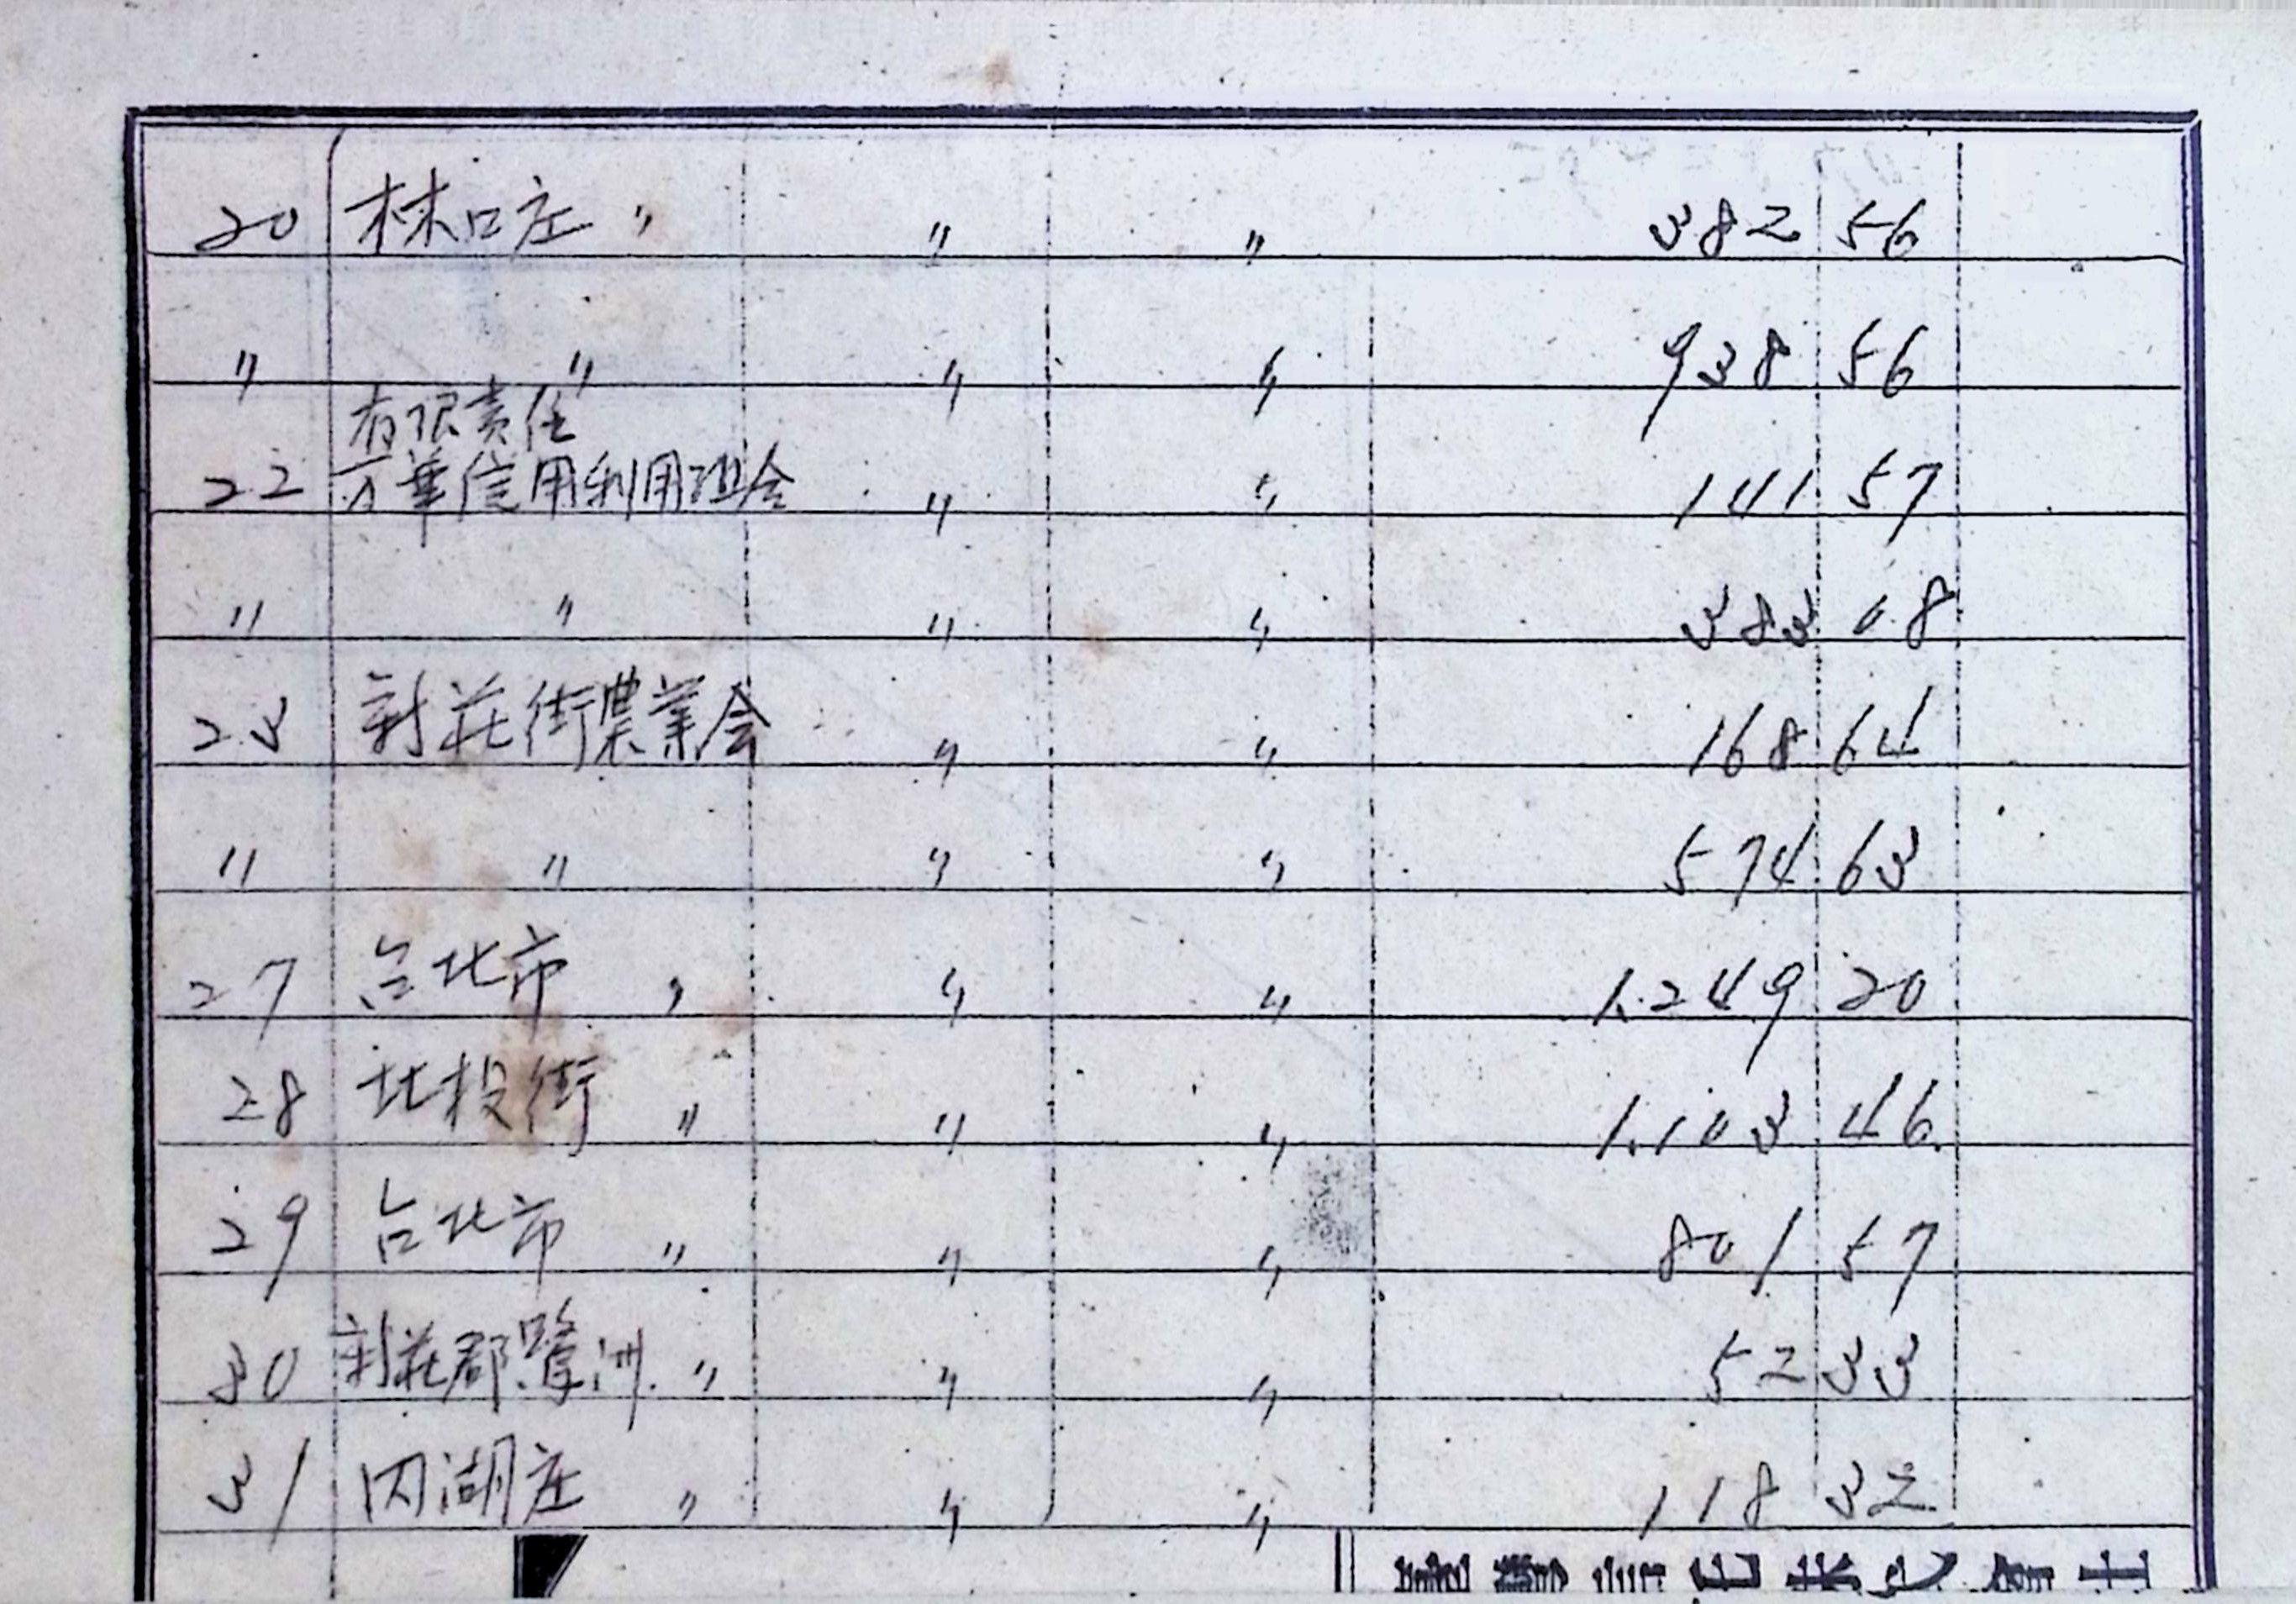 20 林口庄 〃 〃 〃 382 56
〃 〃 〃 〃 938 56
有限責任
22 万華信用利用組合 〃 〃 141 57
〃 〃 〃 〃 383 08
23 新莊街農業会 〃 〃 168 64
〃 〃 〃 〃 574 63
27 台北市 〃 〃 〃 1.249 20
28 北投街 〃 〃 〃 1.103 46
29 台北市 〃 〃 〃 801 57
30 新莊郡鷺洲 〃 〃 〃 52 33
31 内湖庄 〃 〃 〃 118 32